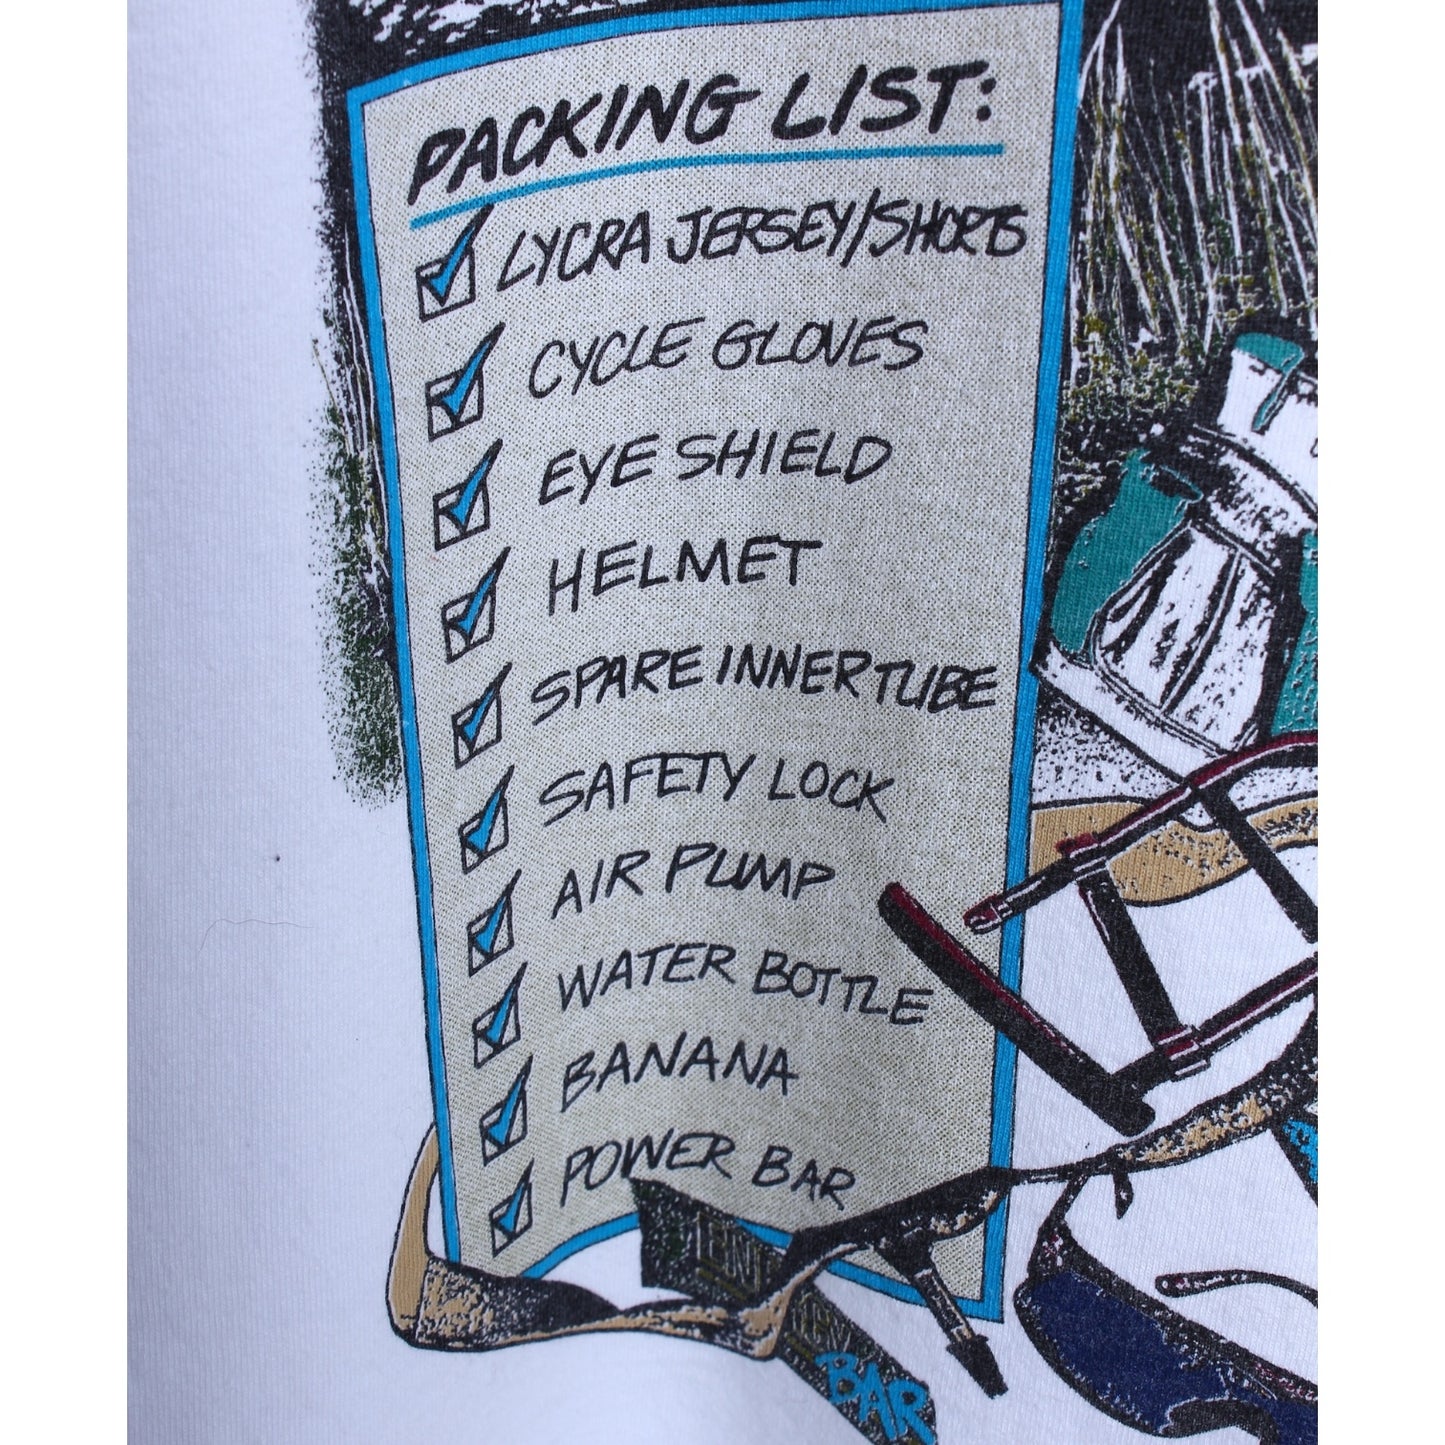 PACKING LIST:
LYCRA JERSEY/SHORTS
CYCLE GLOVES
EYE SHIELD
HELMET
SPARE INNERTUBE
SAFETY LOCK
AIR PUMP
WATER BOTTLE
BANANA
POWER BAR
BAR